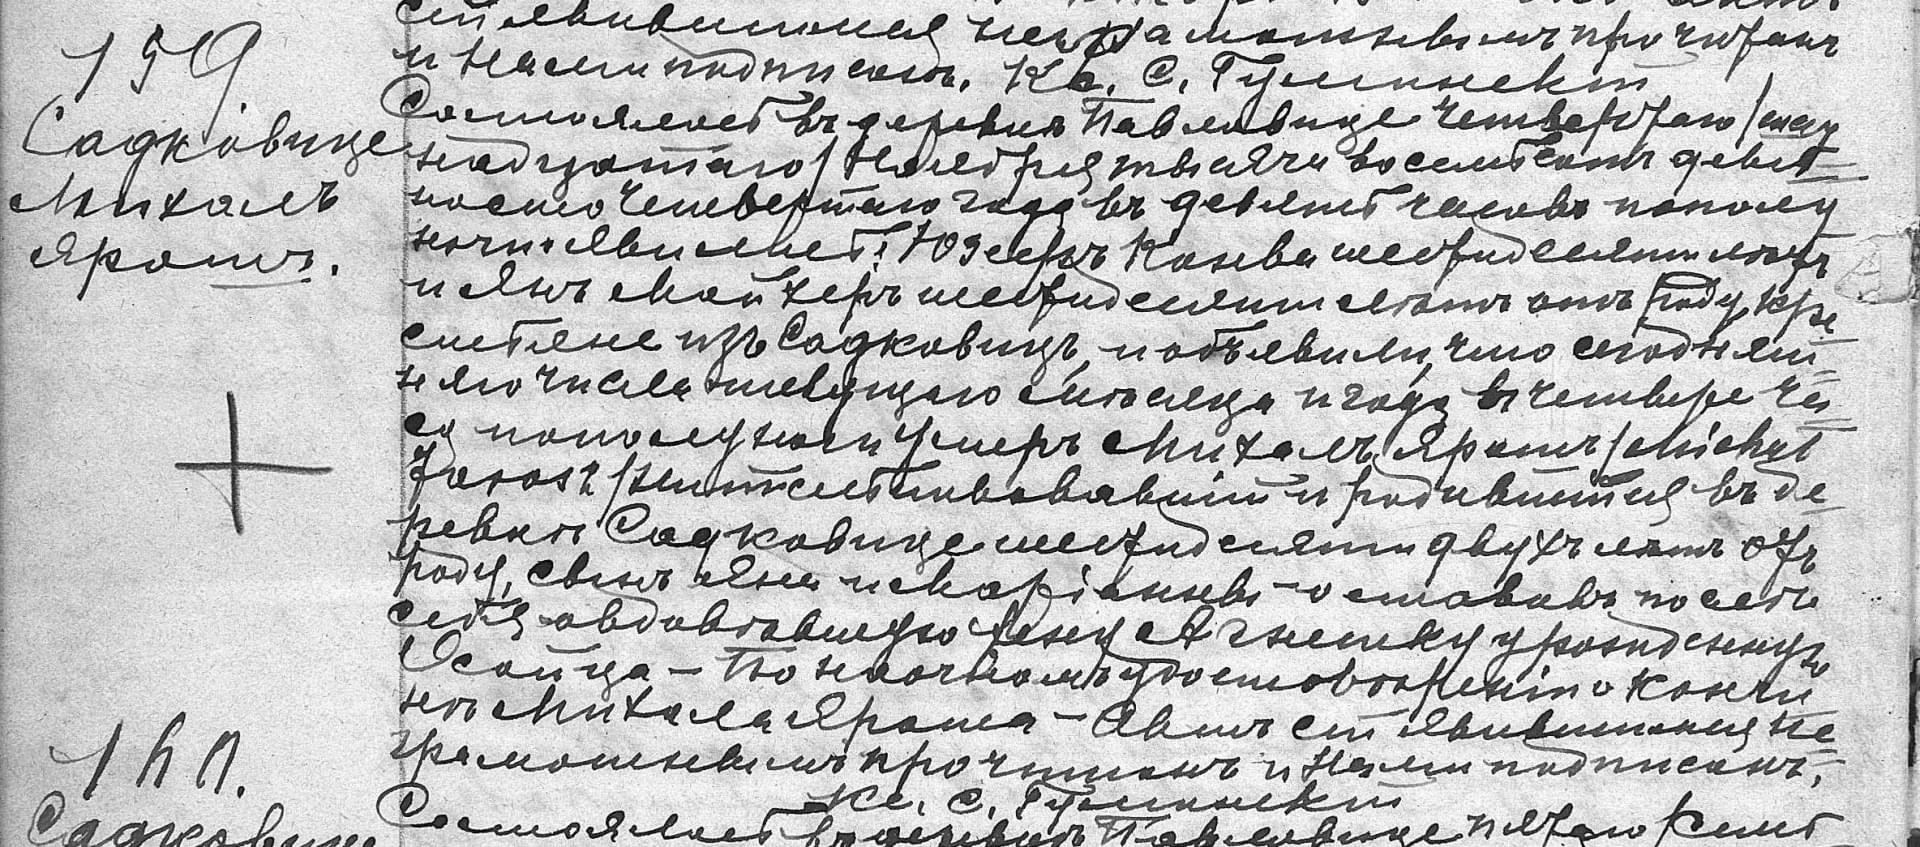 159
Садковице
Михалъ
Ярошъ.
сей явившимся неграмотнымъ прочитанъ
и Нами подписанъ. Кс. С. Гуминскій
Состоялось въ деревнѣ Павловице четвертаго /шест
надцатаго/ Ноября тысяча восемьсотъ девя=
носто четвертаго года въ девять часовъ пополу
ночи явились: Юзефъ шестидесяти лѣтъ
и Янъ шестидесяти лѣтъ отъ роду, кре
стьяне изъ Садковицъ, и объявили, что сегодняш=
няго числа текущаго мѣсяца и года въ четыре ча=
са пополуночи умеръ Михалъ Ярошъ /Michał
Jarosz/ жительствовавшій и родившійся въ де=
ревнѣ Садковице шестидесяти двухъ лѣтъ отъ
роду, сынъ Яна и Маріанны – оставивъ послѣ
себя овдовѣвшую жену Агнешку урожденную
– По наочномъ удостовѣреніи о кончи
нѣ Михала Яроша – Актъ сей явившимся не=
грамотнымъ прочитанъ и Нами подписанъ.
Кс. С. Гуминскій
160.
Садковице
Состоялось въ деревнѣ Павловице пятаго